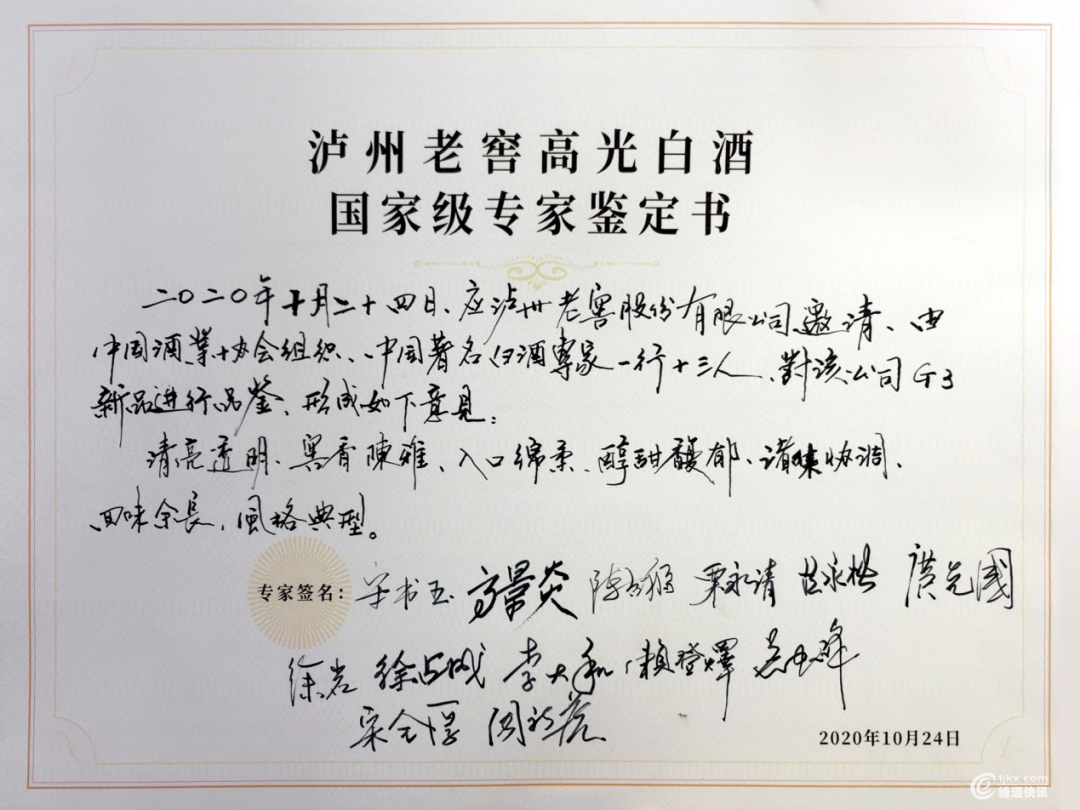 泸州老窖高光白酒
国家级专家鉴定书
二〇二〇年十月二十四日、应泸州老窖股份有限公司邀请、由
中国酒業协会组织、中国著名白酒專家一行十三人、對该公司G3
新品进行品鉴、形成如下意見：
清亮透明、窖香陳雅、入口绵柔、醇甜馥郁、诸味协调、
回味余長、風格典型。
专家签名： 宋书玉 高景炎 栗永清 廣光國
徐岩 徐占成 李大和 賴登燡
宋全厚
2020年10月24日
tjkx.com
糖酒快讯